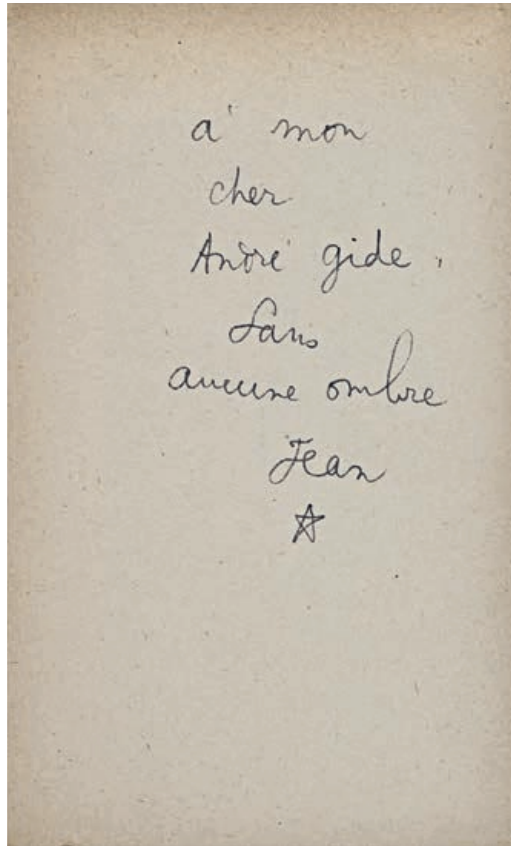 à mon
cher
André gide,
Sans
aucune ombre
Jean